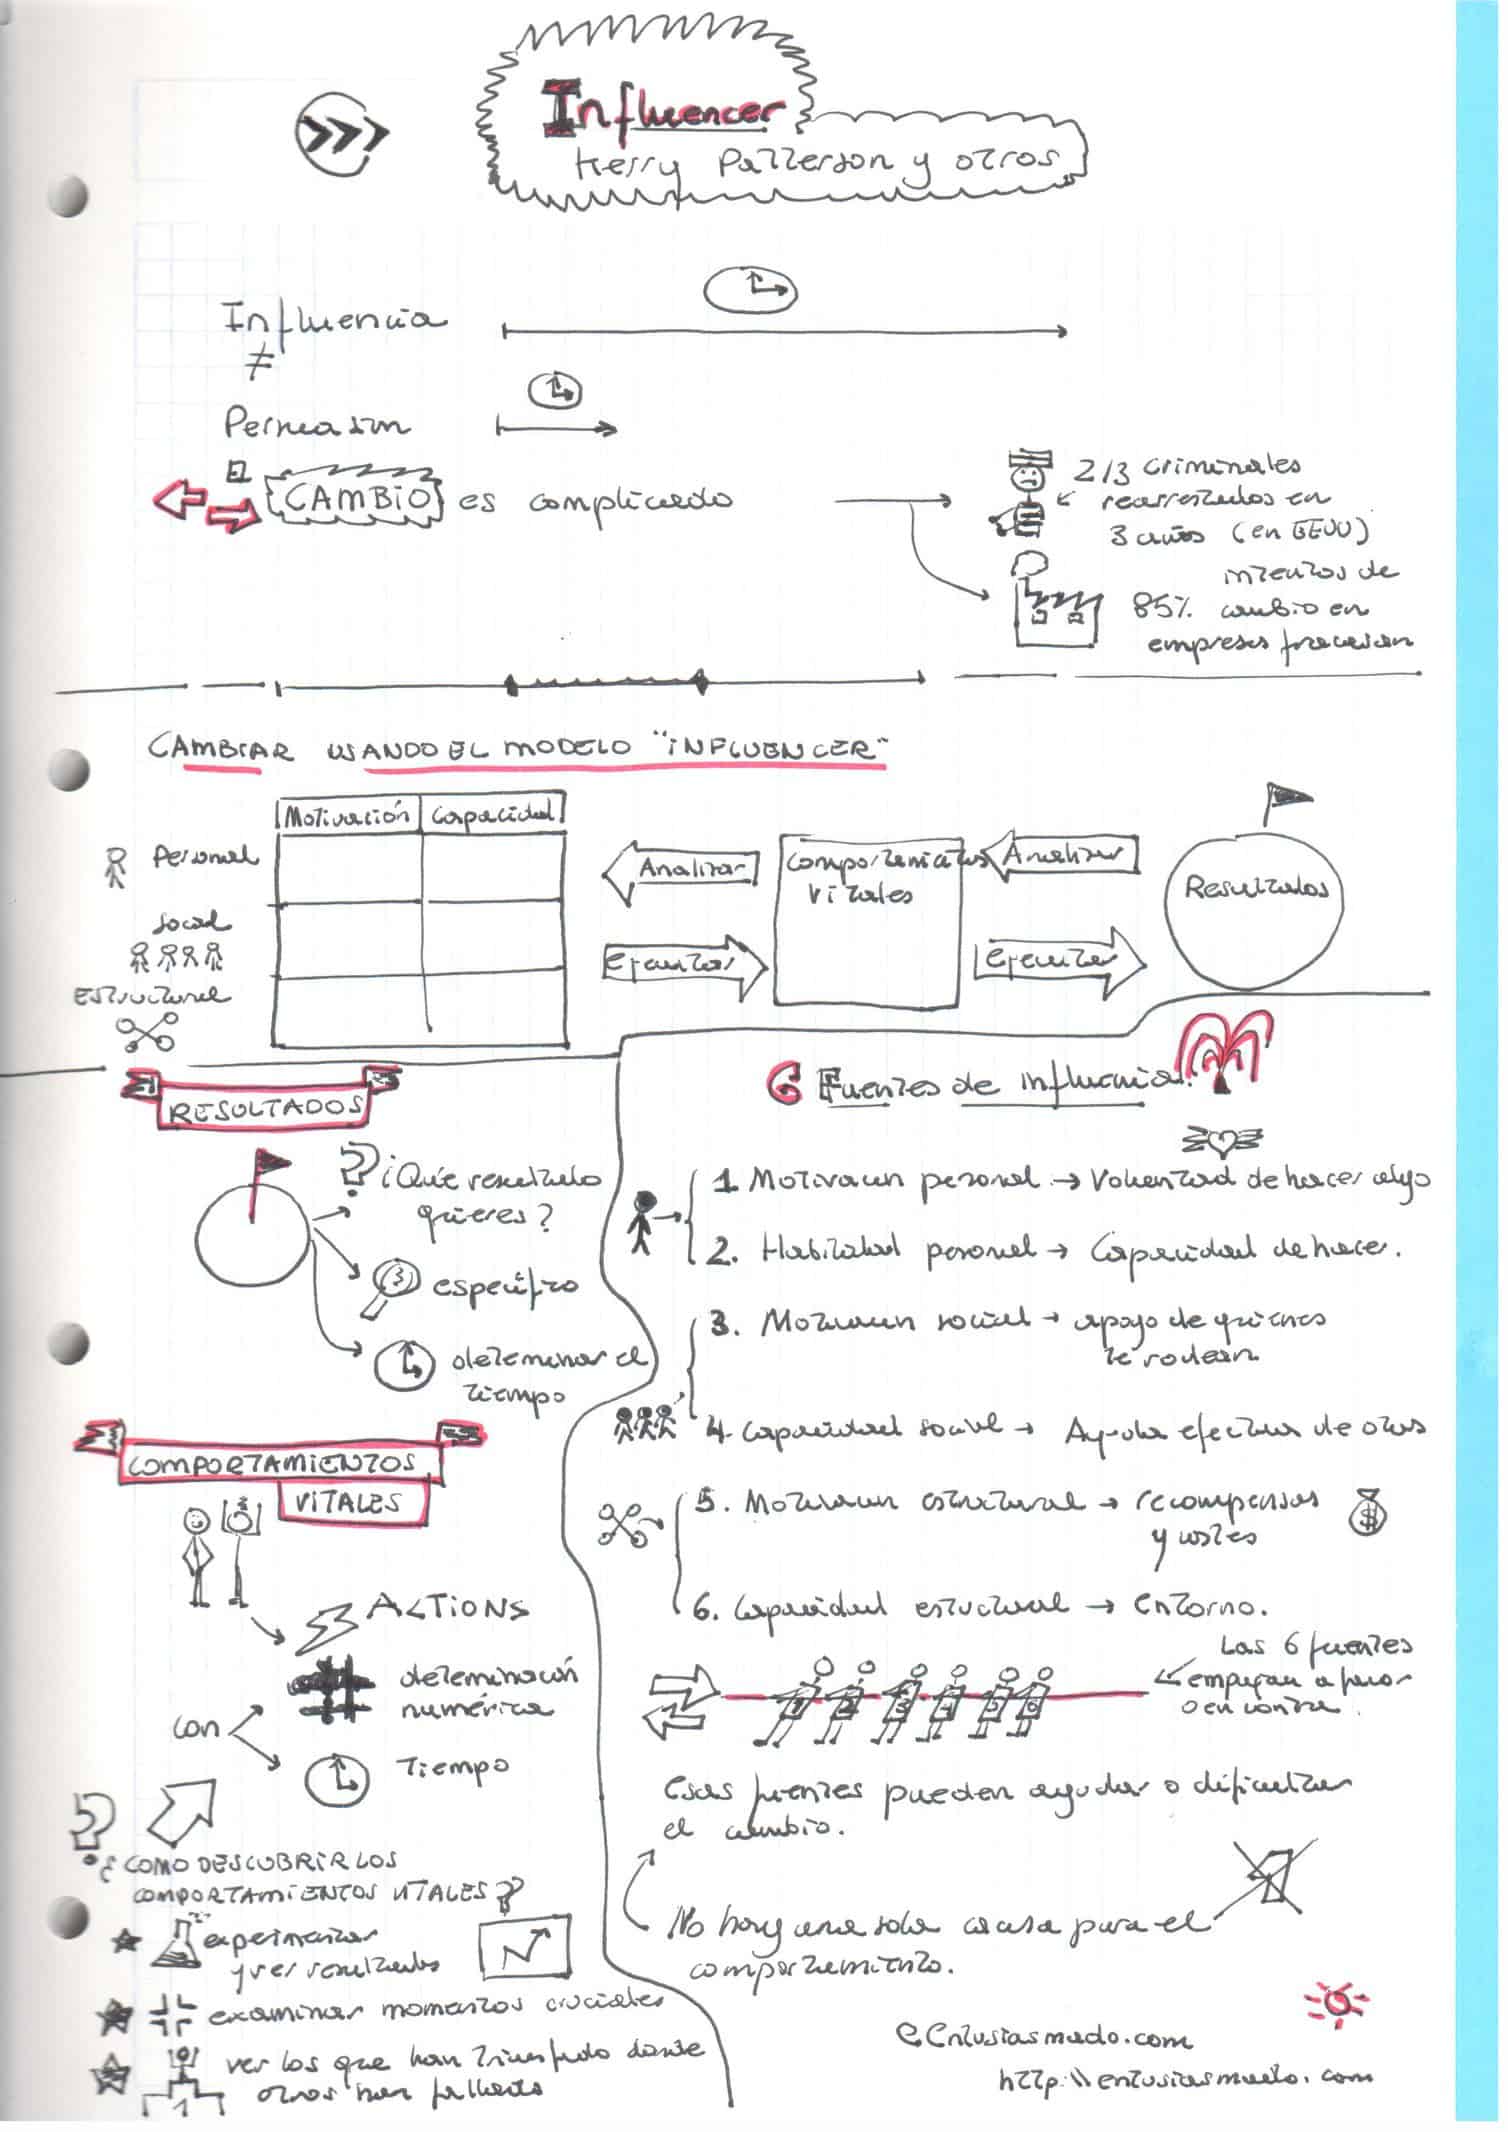 Influencer
Kerry Patterson y otros
Influencia
≠
Persuasión
El CAMBIO es complicado
2/3 criminales
rearrestados en
3 años (en EEUU)
intentos de
85% cambio en
empresas fracasan
CAMBIAR USANDO EL MODELO "INFLUENCER"
Motivación Capacidad
Personal
Social
Estructural
Analizar
Ejecutar
Comportamientos
Vitales
Analizar
Ejecutar
Resultados
RESULTADOS
? ¡Qué resultado
quieres?
específico
determinar el
tiempo
COMPORTAMIENTOS
VITALES
ACTIONS
determinación
numérica
con
Tiempo
?
¿COMO DESCUBRIR LOS
COMPORTAMIENTOS VITALES?
experimentar
y ver resultados
examinar momentos cruciales
ver los que han triunfado donde
otros han fallado
1
6 Fuentes de influencia.
1. Motivacion personal → Voluntad de hacer algo
2. Habilidad personal → Capacidad de hacer.
3. Motivacion social → apoyo de quienes
te rodean
4. Capacidad social → Ayuda efectiva de otros
5. Motivacion estructural → recompensas
y costes
$
6. Capacidad estructural → Entorno.
Las 6 fuentes
empujan a favor
o en contra.
1 2 3 4 5 6
Esas fuentes pueden ayudar o dificultar
el cambio.
No hay una sola causa para el
comportamiento.
@Entusiasmado.com
http:\\entusiasmado.com